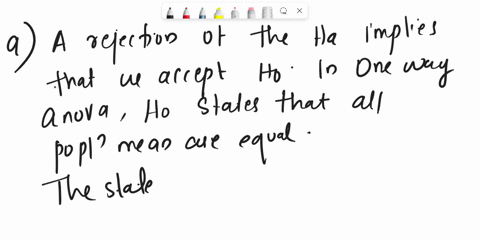 a) A rejection of the Ha implies
that we accept Ho. In One way
anova, Ho states that all
popln mean are equal.
The state